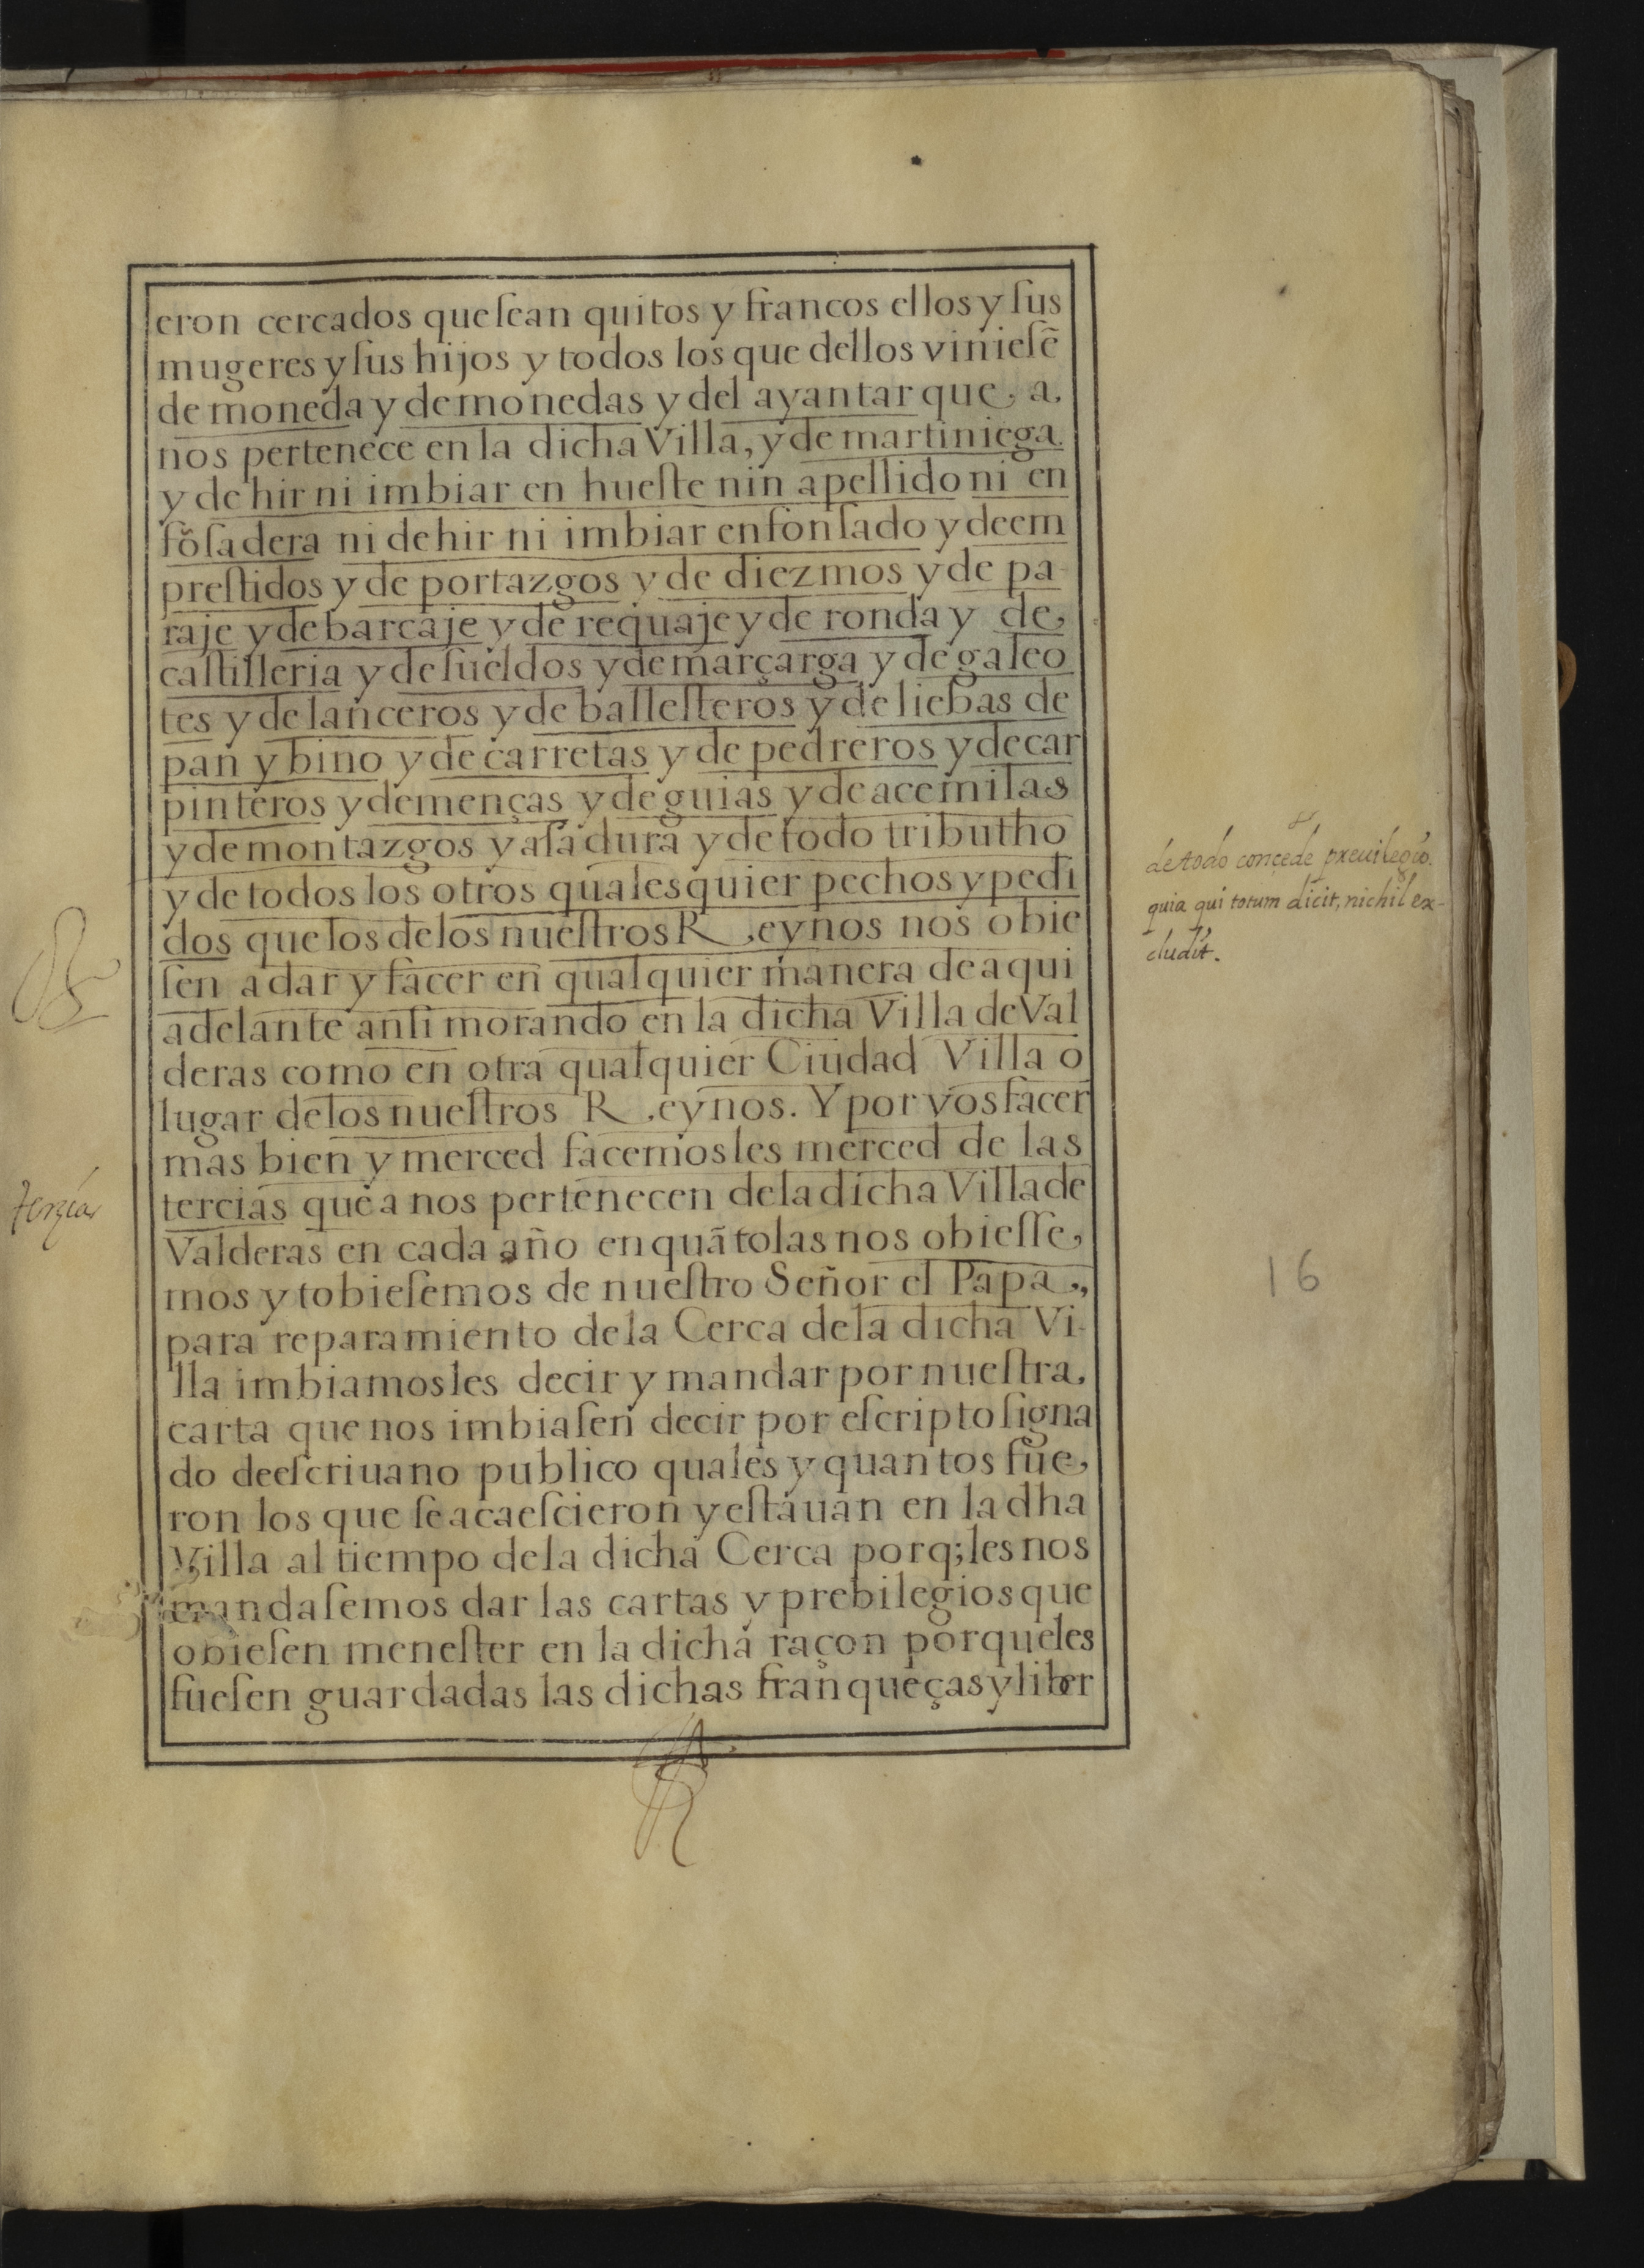 eron cercados que sean quitos y francos ellos y sus
mugeres y sus hijos y todos los que dellos viniesẽ
de moneda y de monedas y del ayantar que a
nos pertenece en la dicha Villa, y de martiniega
y de hir ni imbiar en hueste nin apellido ni en
fõsadera ni de hir ni imbiar en fonsado y de em
prestidos y de portazgos y de diezmos y de pa
raje y de barcaje y de requaje y de ronda y de
castilleria y de sueldos y de marçarga y de galeo
tes y de lanceros y de ballesteros y de liebas de
pan y bino y de carretas y de pedreros y de car
pinteros y de menças y de guias y de acemilas
y de montazgos y asadura y de todo tributho
y de todos los otros qualesquier pechos y pedi
dos que los de los nuestros Reynos nos obie
sen a dar y facer en qualquier manera de aqui
adelante ansi morando en la dicha Villa de Val
deras como en otra qualquier Ciudad Villa o
lugar de los nuestros Reynos. Y por vos facer
mas bien y merced facemosles merced de las
tercias que a nos pertenecen de la dicha Villa de
Valderas en cada año en quãto las nos obiesse,
mos y tobiesemos de nuestro Señor el Papa.,
para reparamiento de la Cerca de la dicha Vi-
lla imbiamosles decir y mandar por nuestra,
carta que nos imbiasen decir por escripto signa
do de escriuano publico quales y quantos fue,
ron los que se acaescieron y estauan en la dha
Villa al tiempo de la dicha Cerca porq; les nos
mandasemos dar las cartas y prebilegios que
obiesen menester en la dicha raçon porque les
fuesen guardadas las dichas franqueças y liber
de todo conçede preuilegio.
quia qui totum dicit, nichil ex-
cludit.
terzias
16